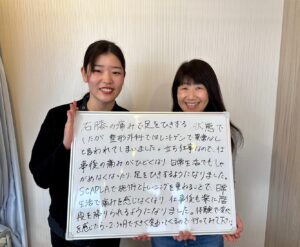 右膝の痛みで足をひきずる 状態で
したが 整形外科ではレントゲンで異常なしと
言われてしまいました。立ち仕事なので、仕
事後の痛みがひどくなり 日常生活でもしゃ
がめなくなったり 足をひきずるようになりました。
SCAPLAで施術とトレーニングを重ねることで、日常
生活で痛みを感じなくなり 仕事後も楽に階
段を降りられるようになりました。体験で変化
を感じたら